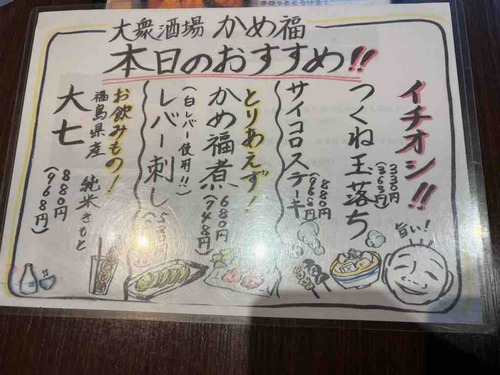 大衆酒場 かめ福
本日のおすすめ!!
イチオシ!!
つくね玉落ち
330円
(363円)
サイコロステーキ
880円
(968円)
とりあえず!
かめ福煮
680円
(748円)
(白レバー使用!!)
レバー刺し
お飲みもの!
福島県産 純米きもと
大七
880円
(968円)
旨い!